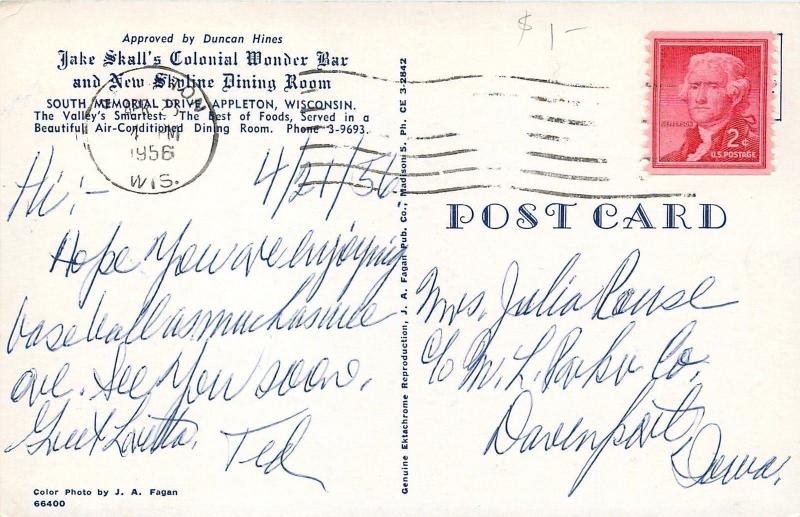 $ 1-
Approved by Duncan Hines
Jake Skall's Colonial Wonder Bar
and New Skyline Dining Room
SOUTH MEMORIAL DRIVE, APPLETON, WISCONSIN.
The Valley's Smartest. The Best of Foods, Served in a
Beautiful Air-Conditioned Dining Room. Phone 3-9693.
PM
1956
WIS.
2¢
U.S. POSTAGE
Hi:- 4/21/56
Hope you are enjoying
baseball as much as we
are. See you soon.
Greet Loretta. Ted
Color Photo by J. A. Fagan
66400
Genuine Ektachrome Reproduction, J. A. Fagan Pub. Co., Madison 5. Ph. CE 3-2842
POST CARD
Mrs. Julia Rouse
c/o M. L. Parker Co.
Davenport,
Iowa.